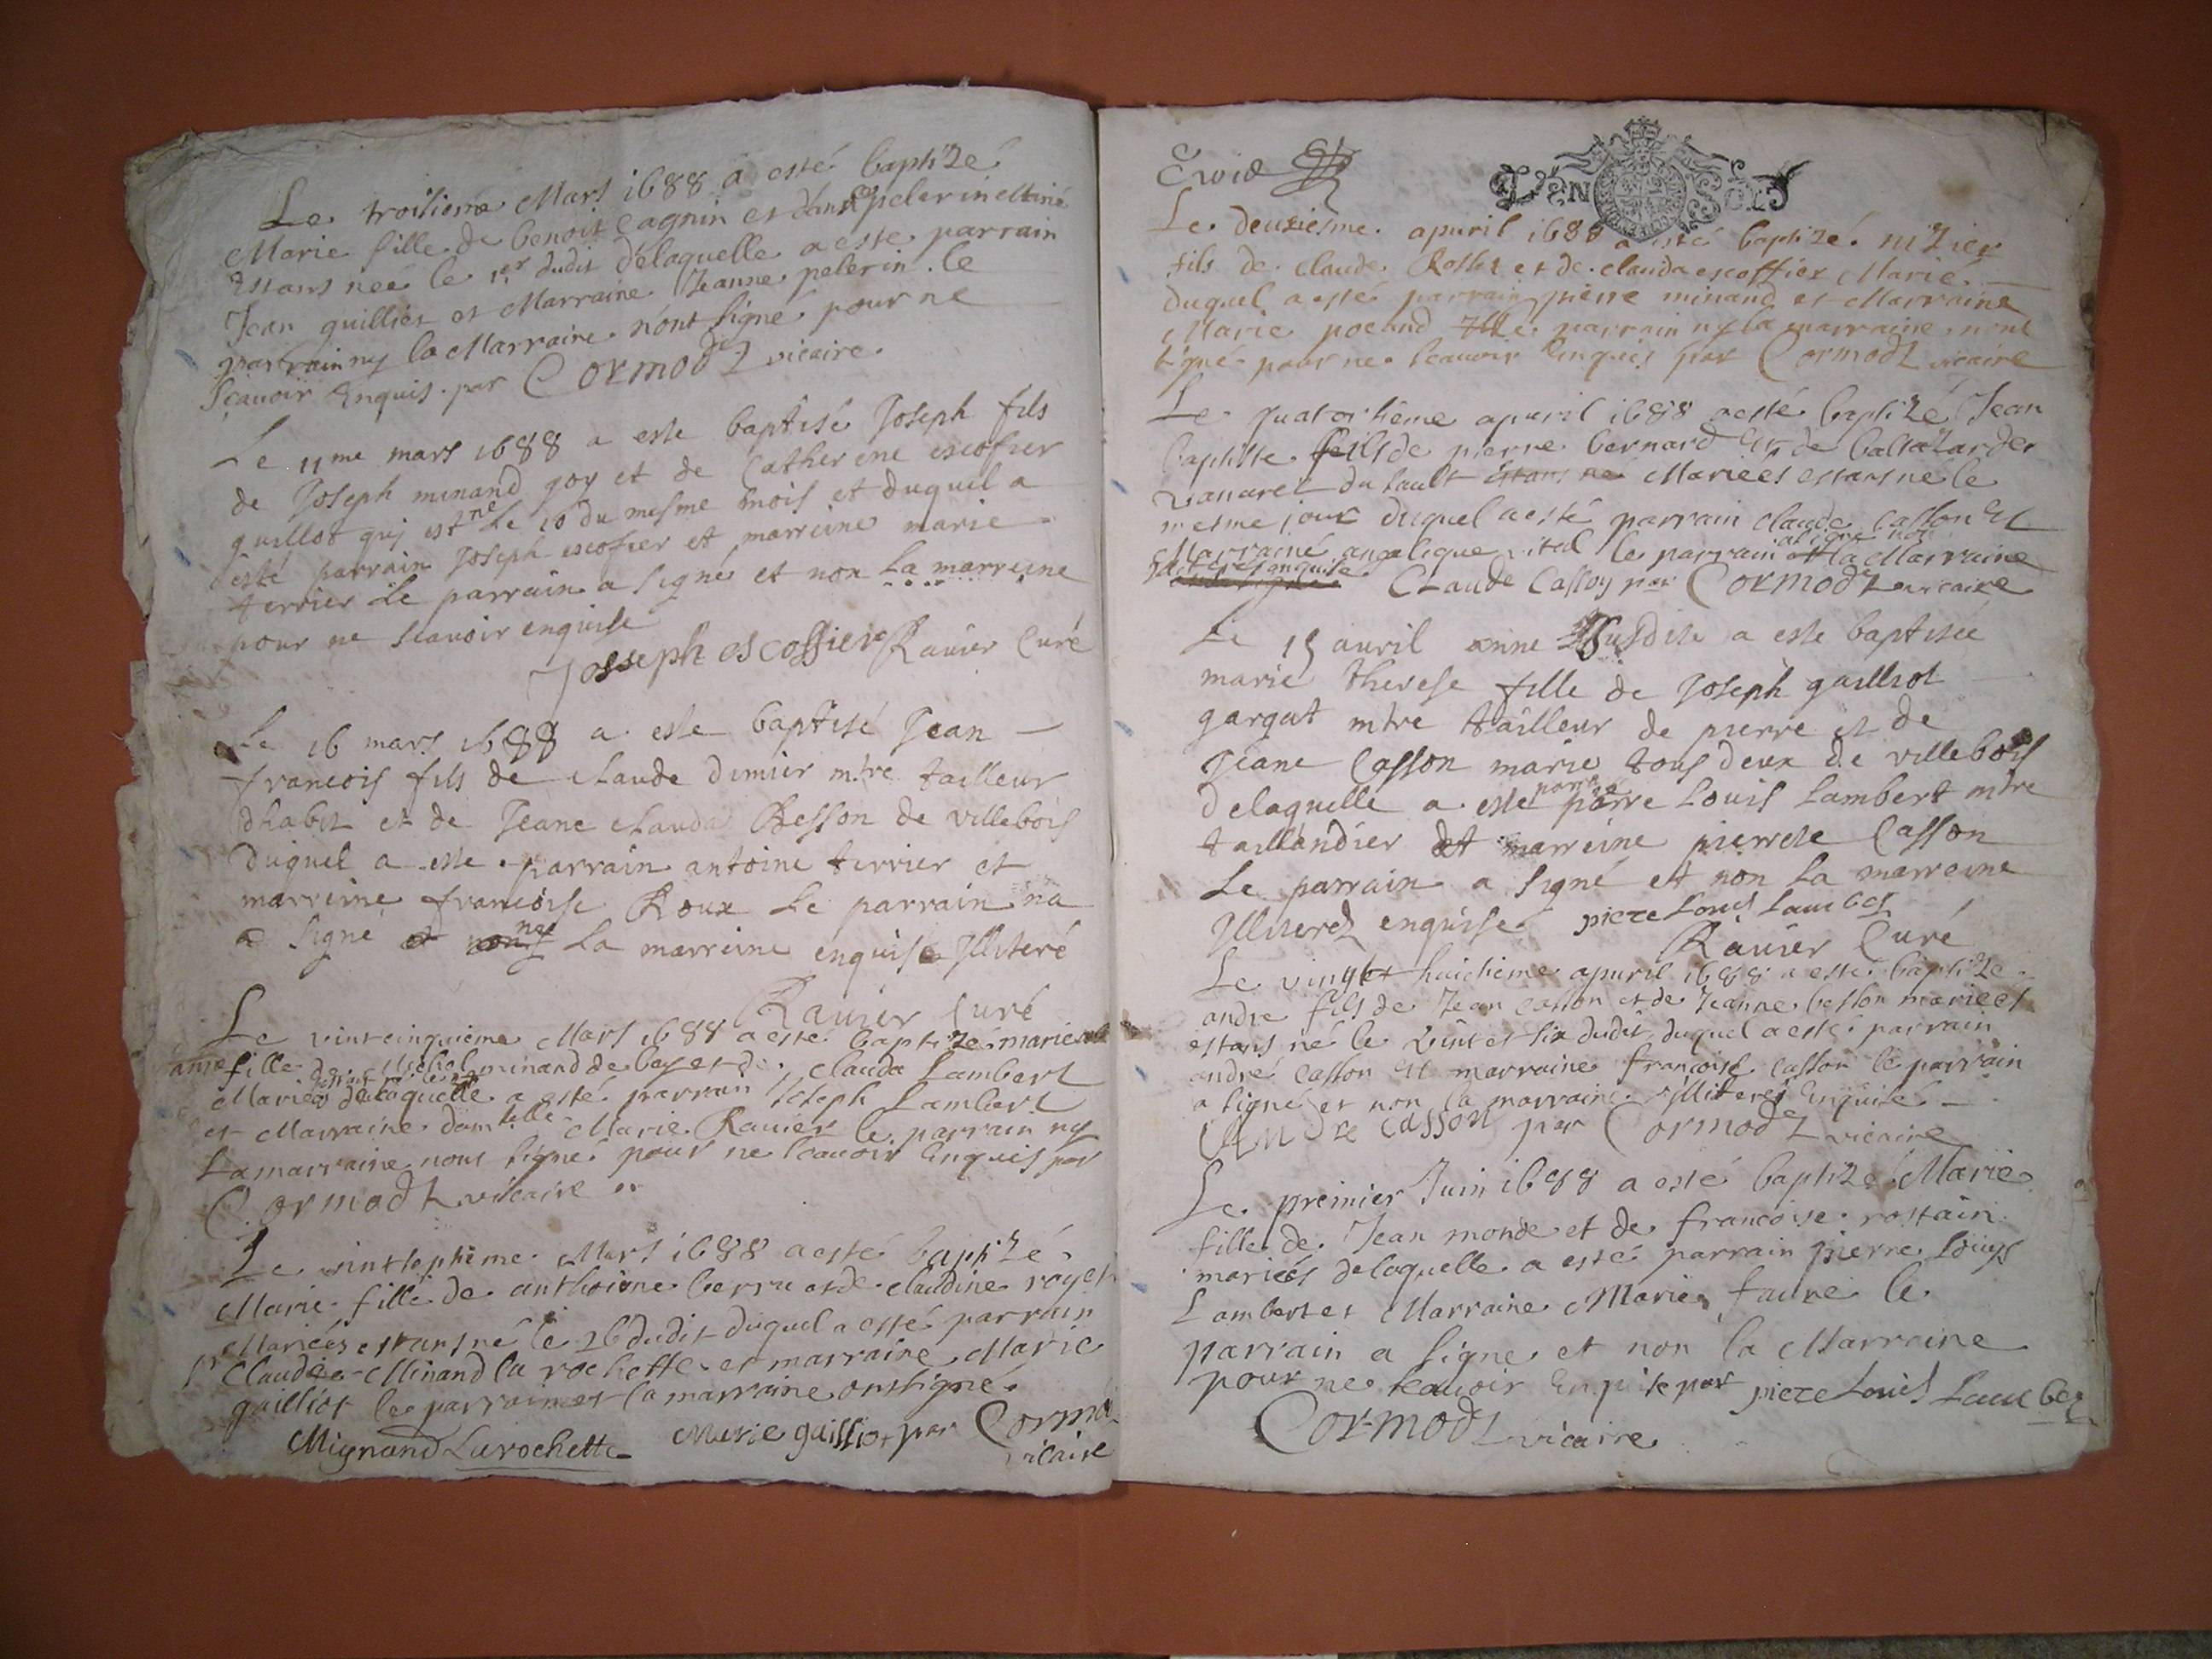 Le troisieme Mars 1688 a esté baptizé
Marie fille de benoit cagnin et pelerin
Estans née le 1er dudit delaquelle a esté parrain
Jean guilliet et Marraine Jeanne pelerin le
parrain ny la Marraine n'ont signé pour ne
sçavoir Enquis par Cormod vicaire
Le 11me mars 1688 a este baptisé Joseph fils
de Joseph minand goy et de Catherine escofier
guillot qui est né Le 10 du mesme mois et duquil a
esté parrain Joseph escofier et marreine marie
terrier Le parrain a signé et non La marreine
pour ne scavoir enquise
Josseph escoffier Ravier Curé
Le 16 mars 1688 a este baptisé Jean
francois fils de claude dimier mtre tailleur
dhabit et de Jeane clauda Besson de villebois
duquel a este parrain antoine terrier et
marreine francoise Roux Le parrain na
signé La marreine enquise Jlliteré
Ravier Curé
Le vintcinquieme Mars 1688 a esté baptizé marie
anne fille de Michel minand de bey et de clauda Lambert
Mariés delaquelle a esté parrain Joseph Lambert
et Marraine damlelle Marie Ravier le parrain ny
La marraine nont signé pour ne scavoir Enquis par
Cormod vicaire
Le vintsephieme Mars 1688 a esté baptizé
Marie fille de anthoine berru et de claudine royer
Mariées estans né le 26 dudit duquel a esté parrain
sr Claude Minand la rochette et marraine Marie
guilliot le parrain et la marraine ont signé
Mignand Larochette Marie guilliot par Cormo
vicaire
Le deuziesme apuril 1688 a esté baptizé
fils de claude Rosset et de clauda escoffier Marié
duquel a esté parrain pierre minand et Marraine
Marie pocand le parrain ny la marraine n'ont
signé pour ne scauoir Enquis par Cormod vicaire
Le quatorsieme apuril 1688 a esté baptizé Jean
baptiste fils de pierre bernard et de baltazarde
du sault Mariees estans né le
mesme jour duquel a esté parrain claude casson et
Marraine angelique vital le parrain a signé non la Marraine
enquise Claude Casson par Cormod vicaire
Le 15 auril anne susdite a este baptisée
marie therese fille de Joseph guilliot
gargat mtre tailleur de pierre et de
Jeane Casson marie tous deux de villebois
delaquelle a este parrain pierre Louis Lambert mtre
taillandier et marreine pierrete Casson
Le parrain a signé et non La marreine
Jlliteré enquise piere Louis Lamber
Ravier Curé
Le vingt huictieme apuril 1688 a esté baptizé
andre fils de Jean casson et de Jeanne besson mariees
estans né le vint et six dudit duquel a esté parrain
andré casson et marraine francoise casson le parrain
a signé et non la marraine Jlliteré Enquise
Andre casson par Cormod vicaire
Le premier Juin 1688 a esté baptizé Marie
fille de Jean monde et de francoise rostain
mariés delaquelle a esté parrain pierre Louys
Lambert et Marraine Marie faure le
parrain a signe et non la Marraine
pour ne scavoir Enquise par piere Louis Lamber
Cormod vicaire